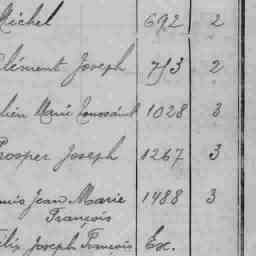 Michel 692 2
lément Joseph 713 2
lien Marie Toussaint 1028 3
rosper Joseph 1267 3
ouis Jean Marie 1488 3
François
élix Joseph François Ex.